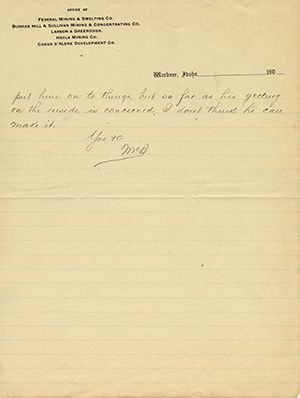 OFFICE OF
FEDERAL MINING & SMELTING CO.
BUNKER HILL & SULLIVAN MINING & CONCENTRATING CO.
LARSON & GREENOUGH.
HECLA MINING CO.
COEUR D'ALENE DEVELOPMENT CO.
Wardner, Idaho, 190
put him on to things but so far as his getting
on the inside is concerned, I dont think he can
made it.
Yos &c
McB